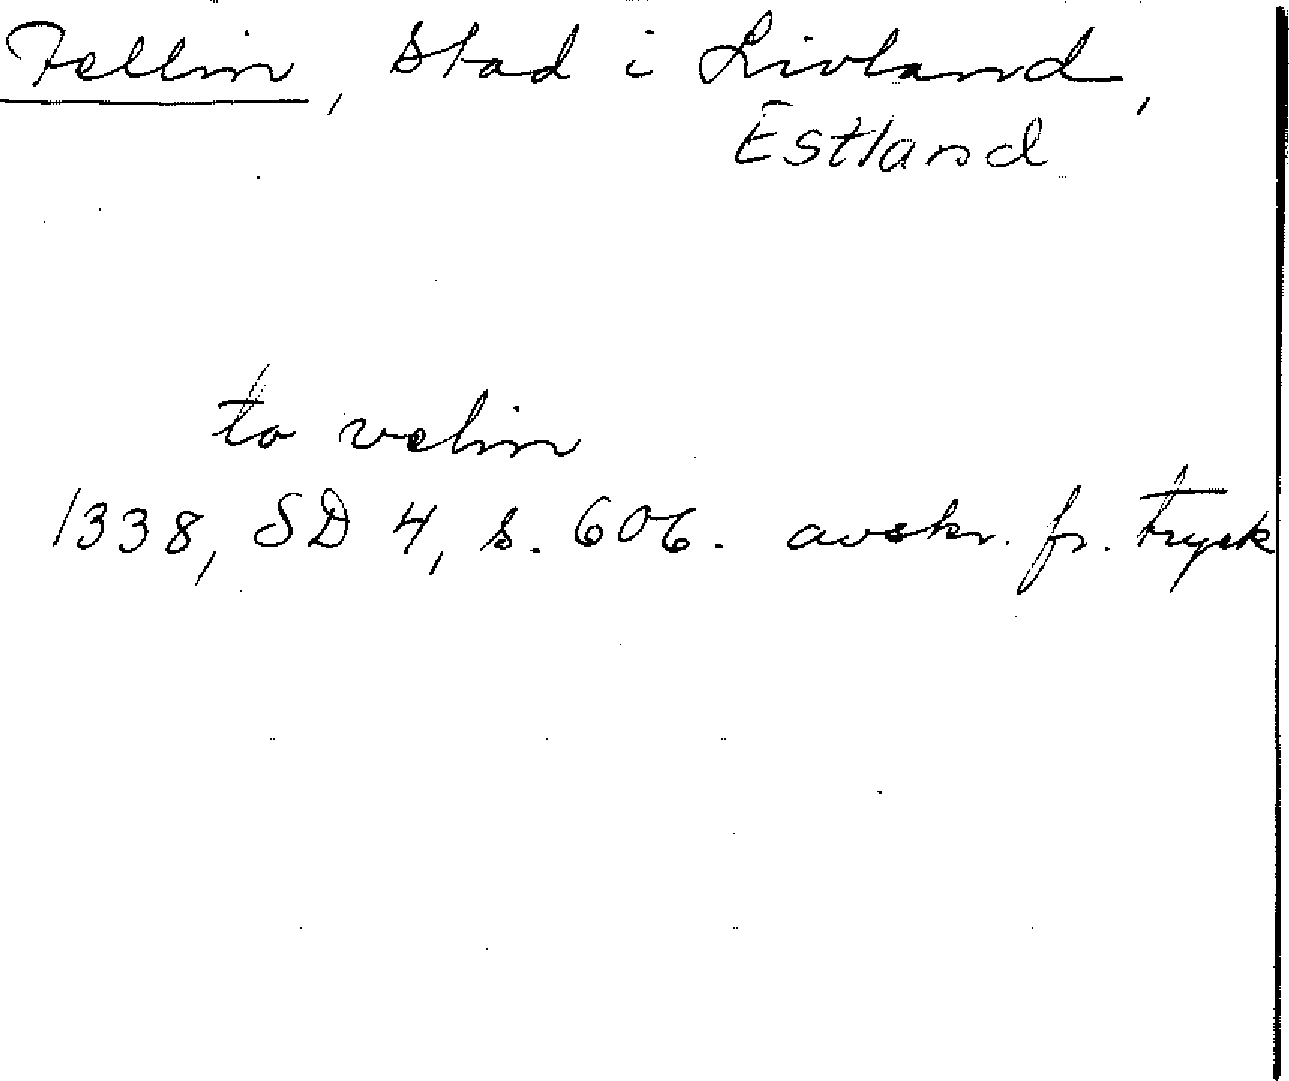 Fellin, Stad i Livland,
Estland
to velin
1338, SD 4, s. 606. avskr. fr. tryck